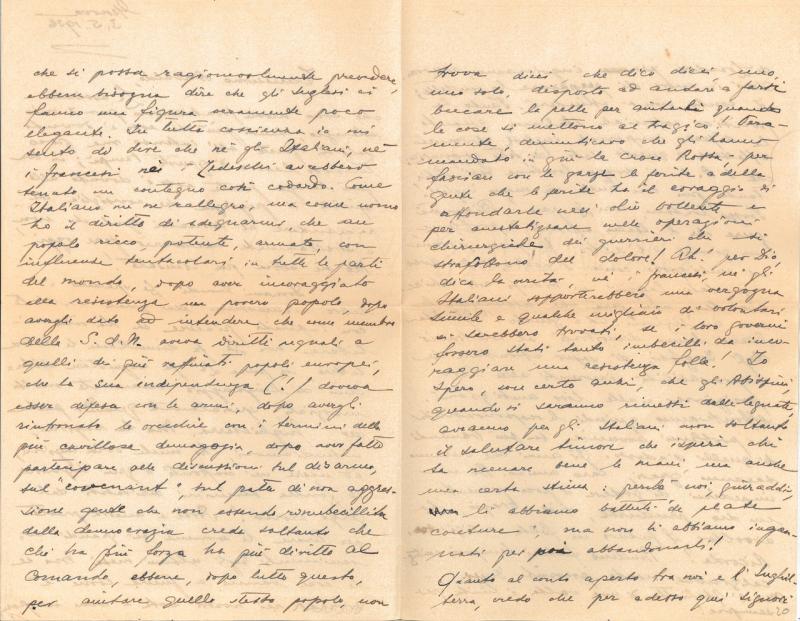 che si possa ragionevolmente prevedere,
ebbene bisogna dire che gli Inglesi ci
fanno una figura veramente poco
elegante. In tutta coscienza io mi
sento di dire che nè gli Italiani, nè
i francesi nè i Tedeschi avrebbero
tenuto un contegno così codardo. Come
Italiano me ne rallegro, ma come uomo
ho il diritto di sdegnarmi, che un
popolo ricco, potente, armato, con
influenze tentacolari in tutte le parti
del mondo, dopo aver incoraggiato
alla resistenza un povero popolo, dopo
avergli dato ad intendere che come membro
della S.d.N. aveva diritti uguali a
quelli dei più raffinati popoli europei,
che la sua indipendenza (!) doveva
esser difesa con le armi, dopo avergli
rintronato le orecchie con i termini della
più cavillosa demagogia, dopo aver fatto
partecipare alle discussioni sul disarmo,
sul "covenant", sul patto di non aggres-
sione gente che non essendo rimbecillita
dalla democrazia crede soltanto che
chi ha più forza ha più diritto al
comando, ebbene, dopo tutto questo,
per aiutare quello stesso popolo, non
trova dieci che dico dieci, uno,
uno solo, disposto ad andare a farsi
bucare la pelle per aiutarli quando
le cose si mettono al tragico! Vera-
mente, dimenticavo che gli hanno
mandato in giù la Croce Rossa per
fasciare con le garze le ferite della
gente che le ferite ha il coraggio di
affondarle nell'olio bollente e
per anestetizzare nelle operazioni
chirurgiche dei guerrieri che si
strafottono del dolore! Ah! per Dio
dica la verità, nè i francesi nè gli
Italiani sopporterebbero una vergogna
simile e qualche migliaio di volontari
si sarebbero trovati, se i loro governi
fossero stati tanto imbecilli da inco-
raggiare una resistenza folle! Io
spero, son certo anzi, che gli Abissini,
quando si saranno rimessi dalle legnate,
avranno per gli Italiani non soltanto
il salutare timore che ispira chi
sa menare bene le mani ma anche
una certa stima: perchè noi,
li abbiamo battuti di
, ma non li abbiamo ingan-
nati per poi abbandonarli!
Quanto al conto aperto tra noi e l'Inghil-
terra, credo che per adesso quei signori
20
Genova
3.5.1936